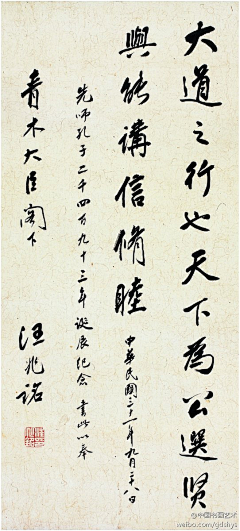 大道之行也天下為公選賢
與能講信脩睦
中華民國三十一年九月二十八日
先師孔子二千四百九十三年誕辰紀念 書此以奉
青木大臣閣下
汪兆銘
@中国书画艺术
weibo.com/gdshys